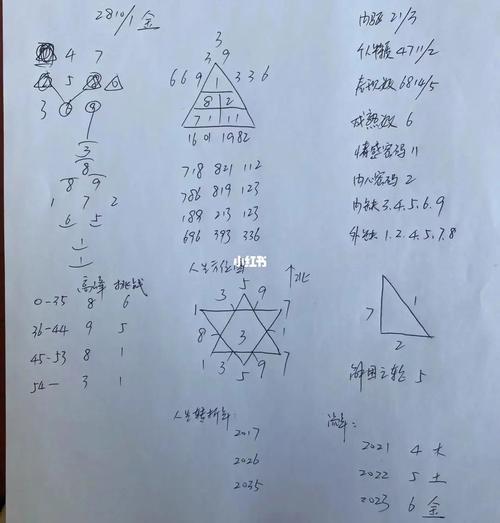 2810/1 金
4 7
5 8 0
3 6 9
3
8
8 9
1 7 2
6 5
1
1
高峰 挑战
0-35 8 6
36-44 9 5
45-53 8 1
54- 3 1
3
3 9
6 6 9 1 3 3 6
8 2
7 1 11
16 01 1982
718 821 112
786 819 123
189 213 123
696 393 336
小红书
人生方位图 北
5
3 9
1 7
8 3 1
1 7
3 9
5
人生转折年:
2017
2026
2035
内驱 21/3
个人特质 4711/2
表现数 6814/5
成熟数 6
情感密码 11
内心密码 2
内缺 3.4.5.6.9
外缺 1.2.4.5.7.8
7 1
2
解困之轮 5
流年:
2021 4 木
2022 5 土
2023 6 金